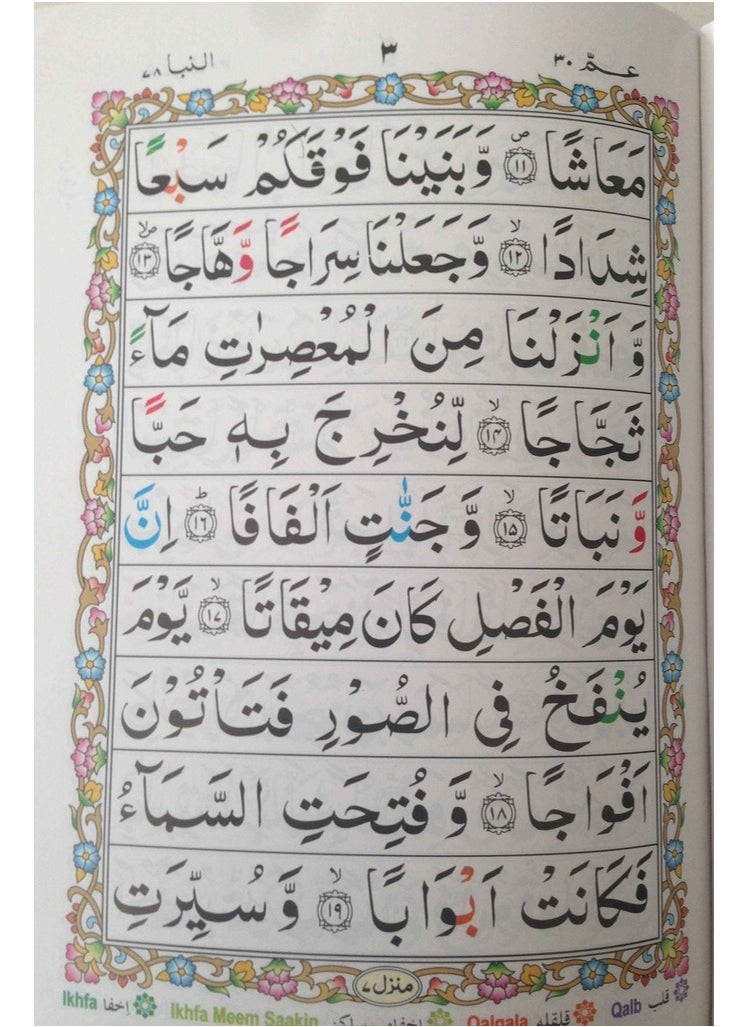 عمّ ۳۰ ۳ النبا ۷۸
مَعَاشًا ۝۱۱ۙ وَّبَنَيْنَا فَوْقَكُمْ سَبْعًا
شِدَادًا ۝۱۲ۙ وَّجَعَلْنَا سِرَاجًا وَّهَّاجًا ۝۱۳ۙ
وَّاَنْزَلْنَا مِنَ الْمُعْصِرٰتِ مَآءً
ثَجَّاجًا ۝۱۴ۙ لِّنُخْرِجَ بِهٖ حَبًّا
وَّنَبَاتًا ۝۱۵ۙ وَّجَنّٰتٍ اَلْفَافًا ۝۱۶ؕ اِنَّ
يَوْمَ الْفَصْلِ كَانَ مِيْقَاتًا ۝۱۷ۙ يَّوْمَ
يُنْفَخُ فِي الصُّوْرِ فَتَاْتُوْنَ
اَفْوَاجًا ۝۱۸ۙ وَّفُتِحَتِ السَّمَآءُ
فَكَانَتْ اَبْوَابًا ۝۱۹ۙ وَّسُيِّرَتِ
منزل ۷
قلب Qalb قلقله Qalqala Ikhfa Meem Saakin اخفا Ikhfa